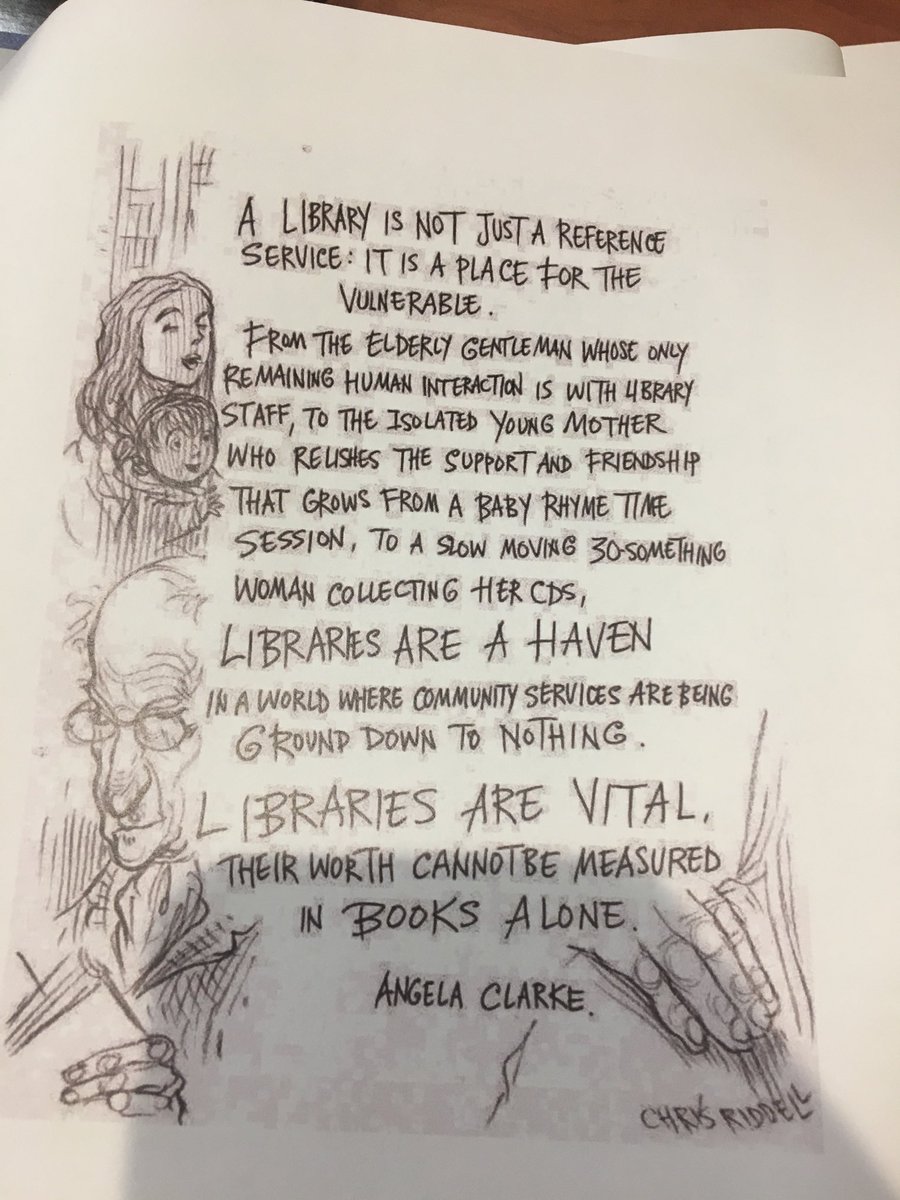 A LIBRARY IS NOT JUST A REFERENCE
SERVICE: IT IS A PLACE FOR THE
VULNERABLE.
FROM THE ELDERLY GENTLEMAN WHOSE ONLY
REMAINING HUMAN INTERACTION IS WITH LIBRARY
STAFF, TO THE ISOLATED YOUNG MOTHER
WHO RELISHES THE SUPPORT AND FRIENDSHIP
THAT GROWS FROM A BABY RHYME TIME
SESSION, TO A SLOW MOVING 30-SOMETHING
WOMAN COLLECTING HER CDS,
LIBRARIES ARE A HAVEN
IN A WORLD WHERE COMMUNITY SERVICES ARE BEING
GROUND DOWN TO NOTHING.
LIBRARIES ARE VITAL.
THEIR WORTH CANNOT BE MEASURED
IN BOOKS ALONE.
ANGELA CLARKE.
CHRIS RIDDELL